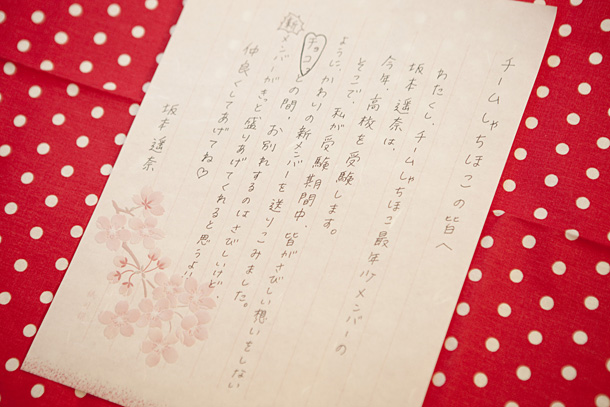 チームしゃちほこの皆へ
わたくし、チームしゃちほこ最年少メンバーの
坂本遥奈は、
今年、高校を受験します。
そこで、私が受験期間中、皆がさびしい想いをしない
ように、かわりの新メンバーを送りこみました。
チョコ♡との間、お別れするのはさびしいけど、
新メンバーがきっと盛りあげてくれると思うよ!!
仲良くしてあげてね♡
坂本遥奈